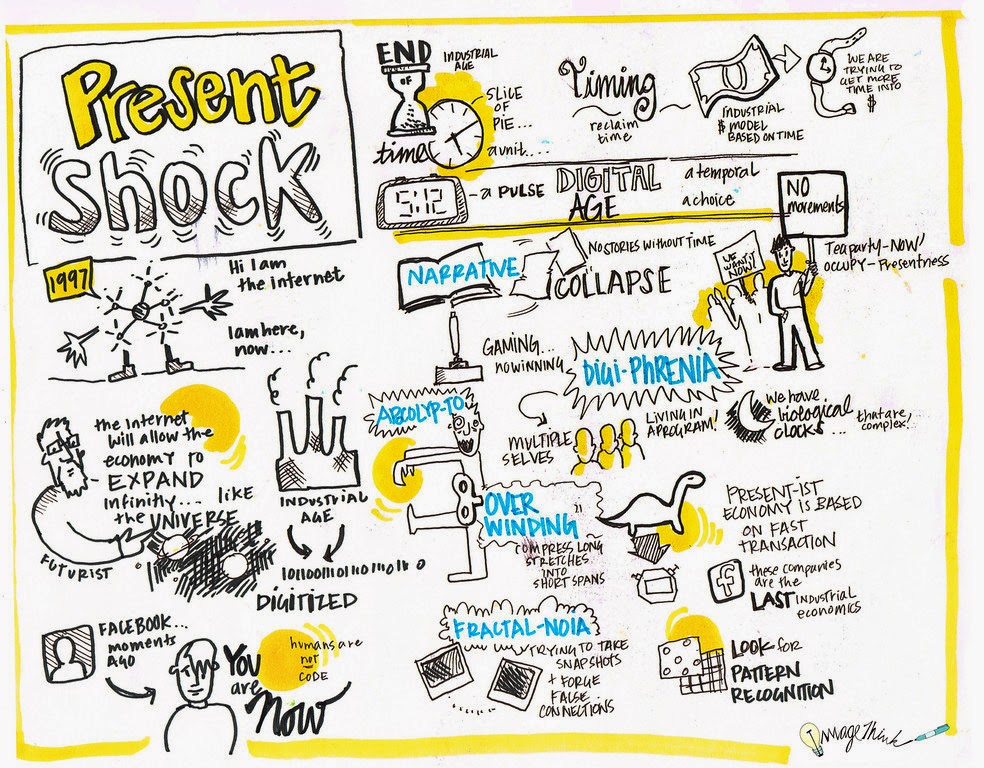 Present
Shock
1997
Hi I am
the internet
I am here,
now...
the internet
will allow the
economy to
EXPAND
infinitly.... like
the UNIVERSE
FUTURIST
INDUSTRIAL
AGE
DIGITIZED
FACEBOOK...
moments
AGO
YOU
are
NOW
humans are
not
CODE
END
OF
time
INDUSTRIAL
AGE
SLICE
OF
PIE...
a unit....
Timing
reclaim
time
INDUSTRIAL
$ MODEL
BASED ON TIME
WE ARE
TRYING TO
GET MORE
TIME INTO
$
5:12
- a PULSE
DIGITAL
AGE
a temporal
a choice
NO
movements
Teaparty-NOW!
OCCUPY-Presentness
WE
WANT IT
NOW!
NARRATIVE
NO STORIES WITHOUT TIME
COLLAPSE
GAMING...
no winning
DIGI-PHRENIA
MULTIPLE
SELVES
LIVING IN
A PROGRAM!
We have
biological
clocks...
that are
complex!
ABCOLYP-TO
OVER
WINDING"
COMPRESS LONG
STRETCHES
INTO
SHORT SPANS
PRESENT-IST
ECONOMY IS BASED
ON FAST
TRANSACTION
f
these companies
are the
LAST industrial
economics
FRACTAL-NOIA
TRYING TO TAKE
SNAPSHOTS
+ FORGE
FALSE
CONNECTIONS
LOOK for
PATTERN
RECOGNITION
ImageThink